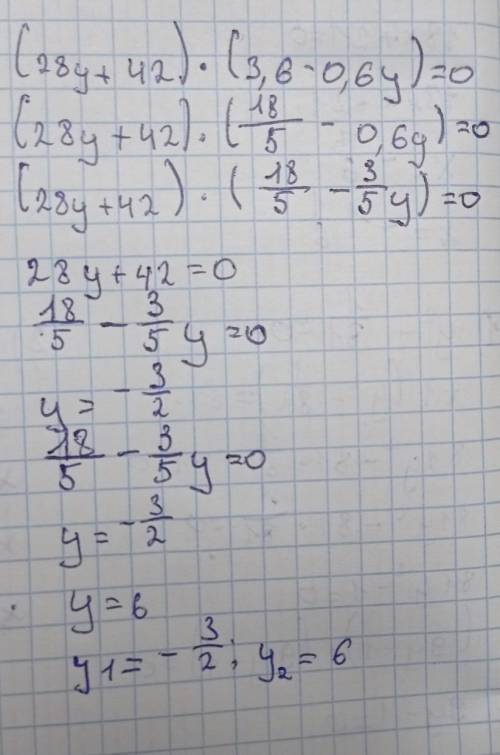 (28y + 42) · (3,6 - 0,6y) = 0
(28y + 42) · (18/5 - 0,6y) = 0
(28y + 42) · (18/5 - 3/5 y) = 0
28y + 42 = 0
18/5 - 3/5 y = 0
y = - 3/2
18/5 - 3/5 y = 0
y = - 3/2
y = 6
y1 = - 3/2; y₂ = 6